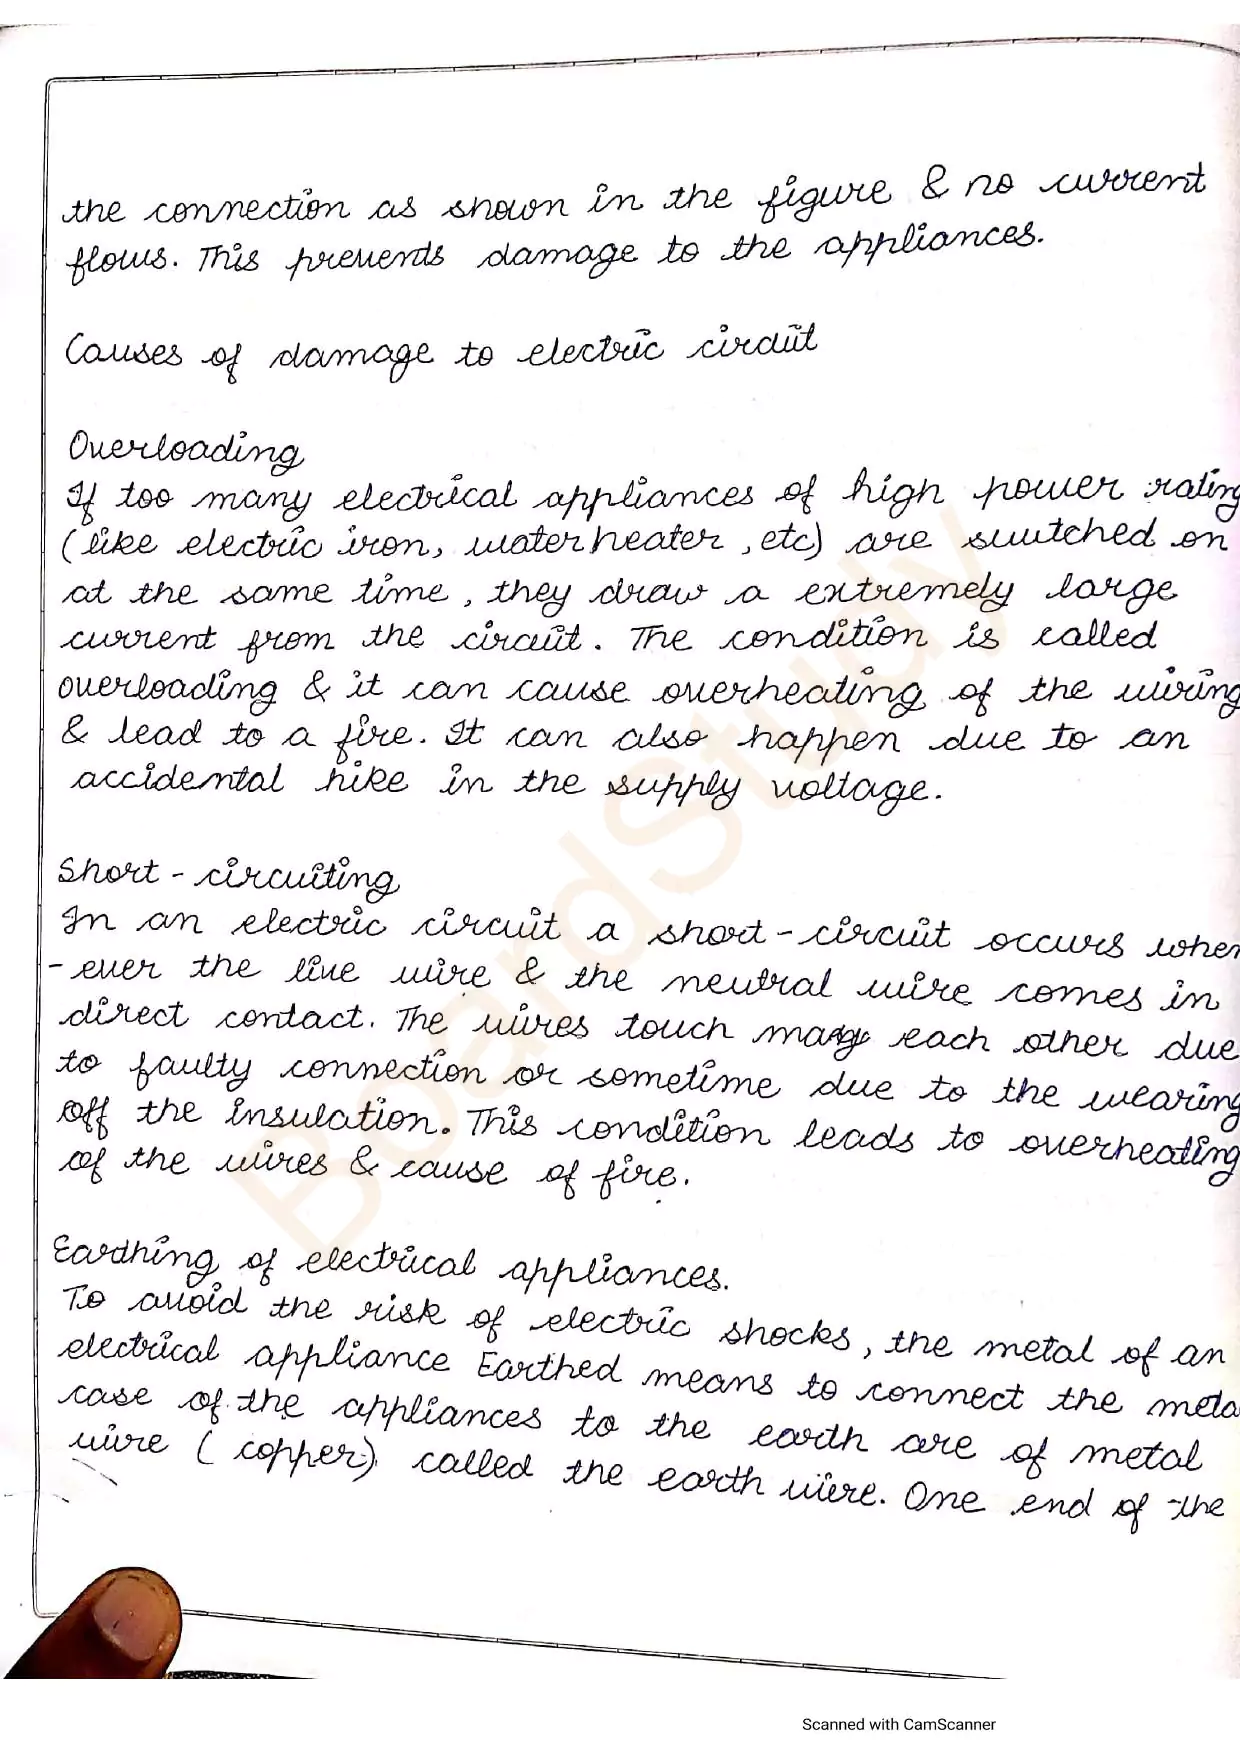 the connection as shown in the figure & no current
flows. This prevents damage to the appliances.
Causes of damage to electric circuit
Overloading
If too many electrical appliances of high power rating
(like electric iron, water heater, etc) are switched on
at the same time, they draw a extremely large
current from the circuit. The condition is called
overloading & it can cause overheating of the wiring
& lead to a fire. It can also happen due to an
accidental hike in the supply voltage.
Short - circuiting
In an electric circuit a short - circuit occurs when
- ever the live wire & the neutral wire comes in
direct contact. The wires touch each other due
to faulty connection or sometime due to the wearing
off the insulation. This condition leads to overheating
of the wires & cause of fire.
Earthing of electrical appliances.
To avoid the risk of electric shocks, the metal of an
electrical appliance Earthed means to connect the meta
case of the appliances to the earth are of metal
wire (copper) called the earth wire. One end of the
BoardStudy
Scanned with CamScanner